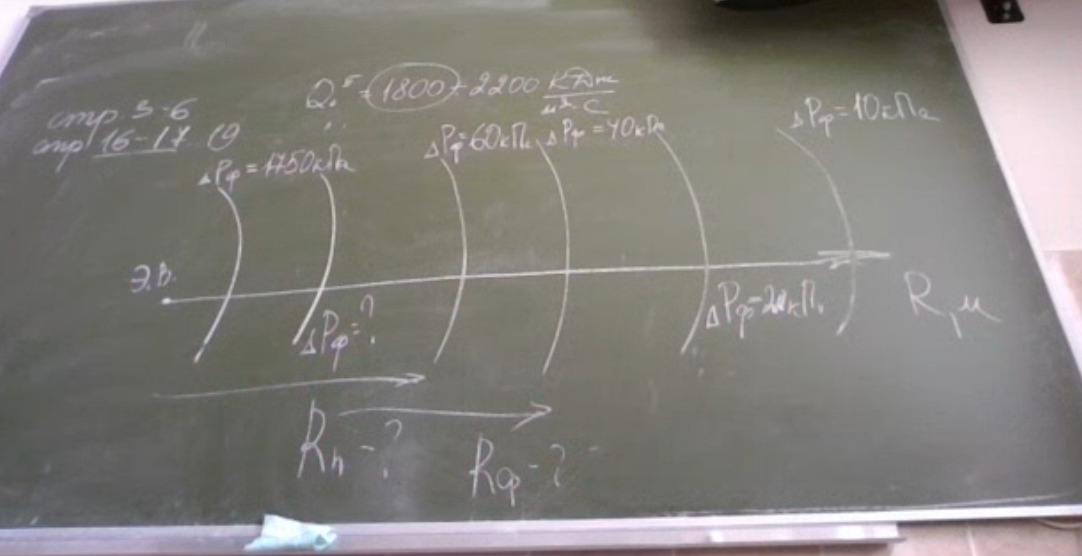 стр. 3-6
стр 16-17
1800 ÷ 2200 кДж
ΔPф = 1750кПа
ΔPф = 60кПа
ΔPф = 40кПа
ΔPф = 10кПа
Э.В.
ΔPф = ?
R, м
Rп - ?
Rф - ?